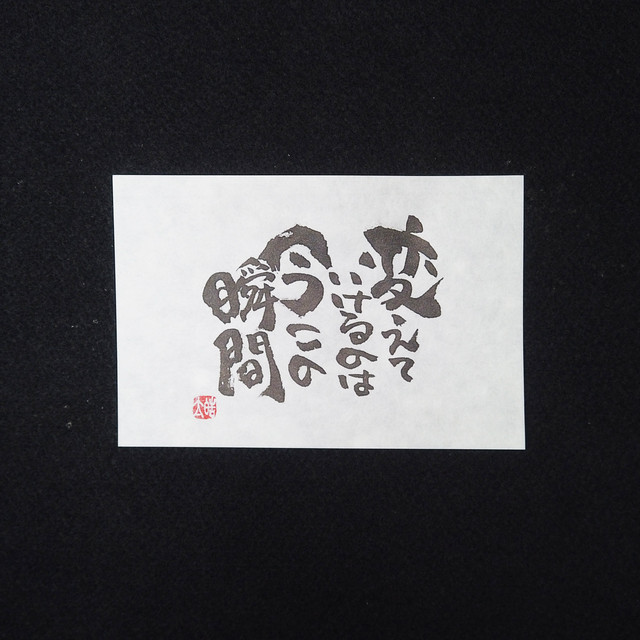 変えて
いけるのは
今この
瞬間